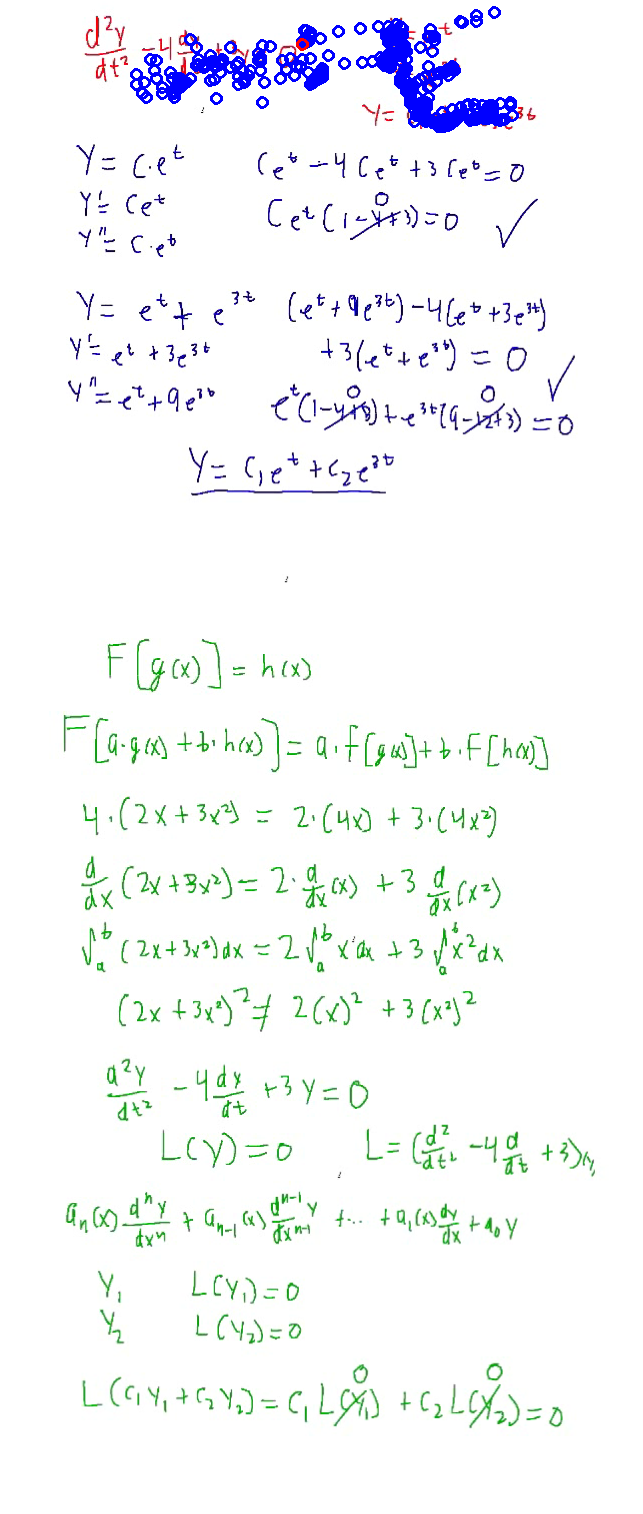 d²y/dt² - 4
Y=
Y = C·eᵗ
Ceᵗ - 4Ceᵗ + 3Ceᵗ = 0
Y' = Ceᵗ
Ceᵗ(1-4+3) = 0 ✓
0
Y'' = C·eᵗ
Y = eᵗ + e³ᵗ
(eᵗ + 9e³ᵗ) - 4(eᵗ + 3e³ᵗ)
Y' = eᵗ + 3e³ᵗ
+3(eᵗ + e³ᵗ) = 0 ✓
Y'' = eᵗ + 9e³ᵗ
0 0
eᵗ(1-4+3) + e³ᵗ(9-12+3) = 0
Y = C₁eᵗ + C₂e³ᵗ
F[g(x)] = h(x)
F[a·g(x) + b·h(x)] = a·F[g(x)] + b·F[h(x)]
4·(2x + 3x²) = 2·(4x) + 3·(4x²)
d/dx (2x + 3x²) = 2·d/dx(x) + 3 d/dx(x²)
∫ₐᵇ (2x + 3x²)dx = 2∫ₐᵇ x dx + 3∫ₐᵇ x²dx
(2x + 3x²)² ≠ 2(x)² + 3(x²)²
d²y/dt² - 4 dy/dt + 3y = 0
L(y) = 0 L = (d²/dt² - 4 d/dt + 3)(y)
aₙ(x) dⁿy/dxⁿ + aₙ₋₁(x) dⁿ⁻¹y/dxⁿ⁻¹ + ... + a₁(x) dy/dx + a₀y
Y₁ L(Y₁) = 0
Y₂ L(Y₂) = 0
0 0
L(C₁Y₁ + C₂Y₂) = C₁L(Y₁) + C₂L(Y₂) = 0